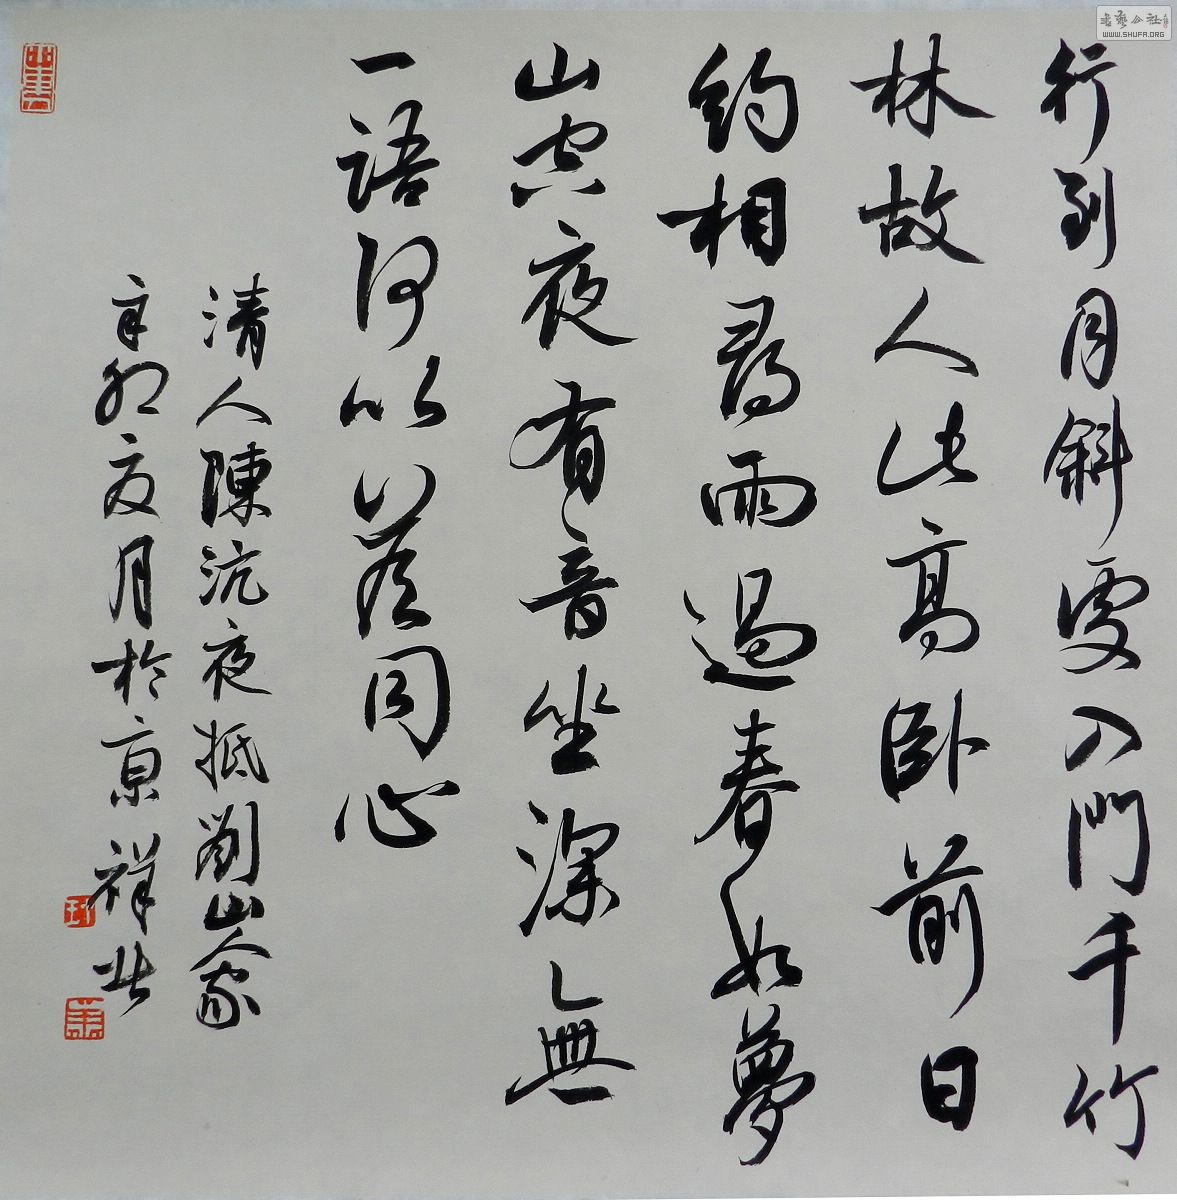 行到月斜處入門千竹
林故人此高卧前日
約相尋雨過春如夢
山空夜有音坐深無
一語何以答同心
清人陳沆夜抵劉山人家
辛卯夏月於京祥
WWW.SHUFA.ORG